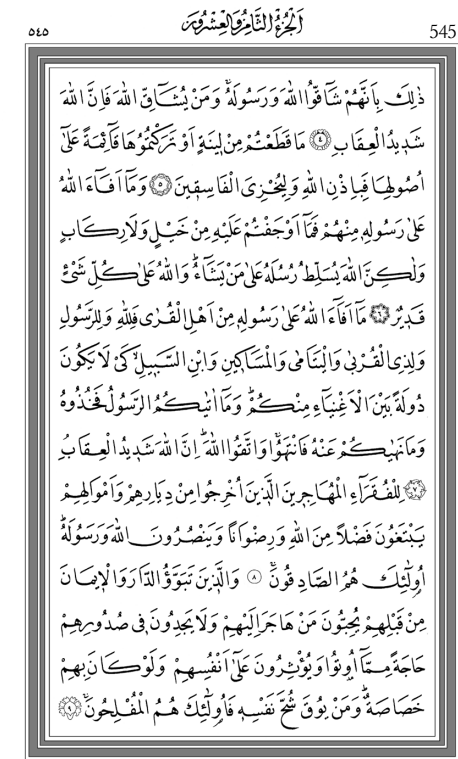 545 اَلْجُزْءُ الثَّامِنُ وَالْعِشْرُونَ ٥٤٥
ذٰلِكَ بِاَنَّهُمْ شَٓاقُّوا اللّٰهَ وَرَسُولَهُۚ وَمَنْ يُشَٓاقِّ اللّٰهَ فَاِنَّ اللّٰهَ
شَد۪يدُ الْعِقَابِ ﴿٤﴾ مَا قَطَعْتُمْ مِنْ ل۪ينَةٍ اَوْ تَرَكْتُمُوهَا قَٓائِمَةً عَلٰٓى
اُصُولِهَا فَبِاِذْنِ اللّٰهِ وَلِيُخْزِيَ الْفَاسِق۪ينَ ﴿٥﴾ وَمَٓا اَفَٓاءَ اللّٰهُ
عَلٰى رَسُولِه۪ مِنْهُمْ فَمَٓا اَوْجَفْتُمْ عَلَيْهِ مِنْ خَيْلٍ وَلَا رِكَابٍ
وَلٰكِنَّ اللّٰهَ يُسَلِّطُ رُسُلَهُ عَلٰى مَنْ يَشَٓاءُۜ وَاللّٰهُ عَلٰى كُلِّ شَيْءٍ
قَد۪يرٌ ﴿٦﴾ مَٓا اَفَٓاءَ اللّٰهُ عَلٰى رَسُولِه۪ مِنْ اَهْلِ الْقُرٰى فَلِلّٰهِ وَلِلرَّسُولِ
وَلِذِي الْقُرْبٰى وَالْيَتَامٰى وَالْمَسَاك۪ينِ وَابْنِ السَّب۪يلِۙ كَيْ لَا يَكُونَ
دُولَةً بَيْنَ الْاَغْنِيَٓاءِ مِنْكُمْۜ وَمَٓا اٰتٰيكُمُ الرَّسُولُ فَخُذُوهُ
وَمَا نَهٰيكُمْ عَنْهُ فَانْتَهُواۚ وَاتَّقُوا اللّٰهَۜ اِنَّ اللّٰهَ شَد۪يدُ الْعِقَابِۢ
﴿٧﴾ لِلْفُقَرَٓاءِ الْمُهَاجِر۪ينَ الَّذ۪ينَ اُخْرِجُوا مِنْ دِيَارِهِمْ وَاَمْوَالِهِمْ
يَبْتَغُونَ فَضْلًا مِنَ اللّٰهِ وَرِضْوَانًا وَيَنْصُرُونَ اللّٰهَ وَرَسُولَهُۜ
اُو۬لٰٓئِكَ هُمُ الصَّادِقُونَۚ ﴿٨﴾ وَالَّذ۪ينَ تَبَوَّؤُ الدَّارَ وَالْا۪يمَانَ
مِنْ قَبْلِهِمْ يُحِبُّونَ مَنْ هَاجَرَ اِلَيْهِمْ وَلَا يَجِدُونَ ف۪ي صُدُورِهِمْ
حَاجَةً مِمَّٓا اُو۫تُوا وَيُؤْثِرُونَ عَلٰٓى اَنْفُسِهِمْ وَلَوْ كَانَ بِهِمْ
خَصَاصَةٌۜ وَمَنْ يُوقَ شُحَّ نَفْسِه۪ فَاُو۬لٰٓئِكَ هُمُ الْمُفْلِحُونَۚ ﴿٩﴾